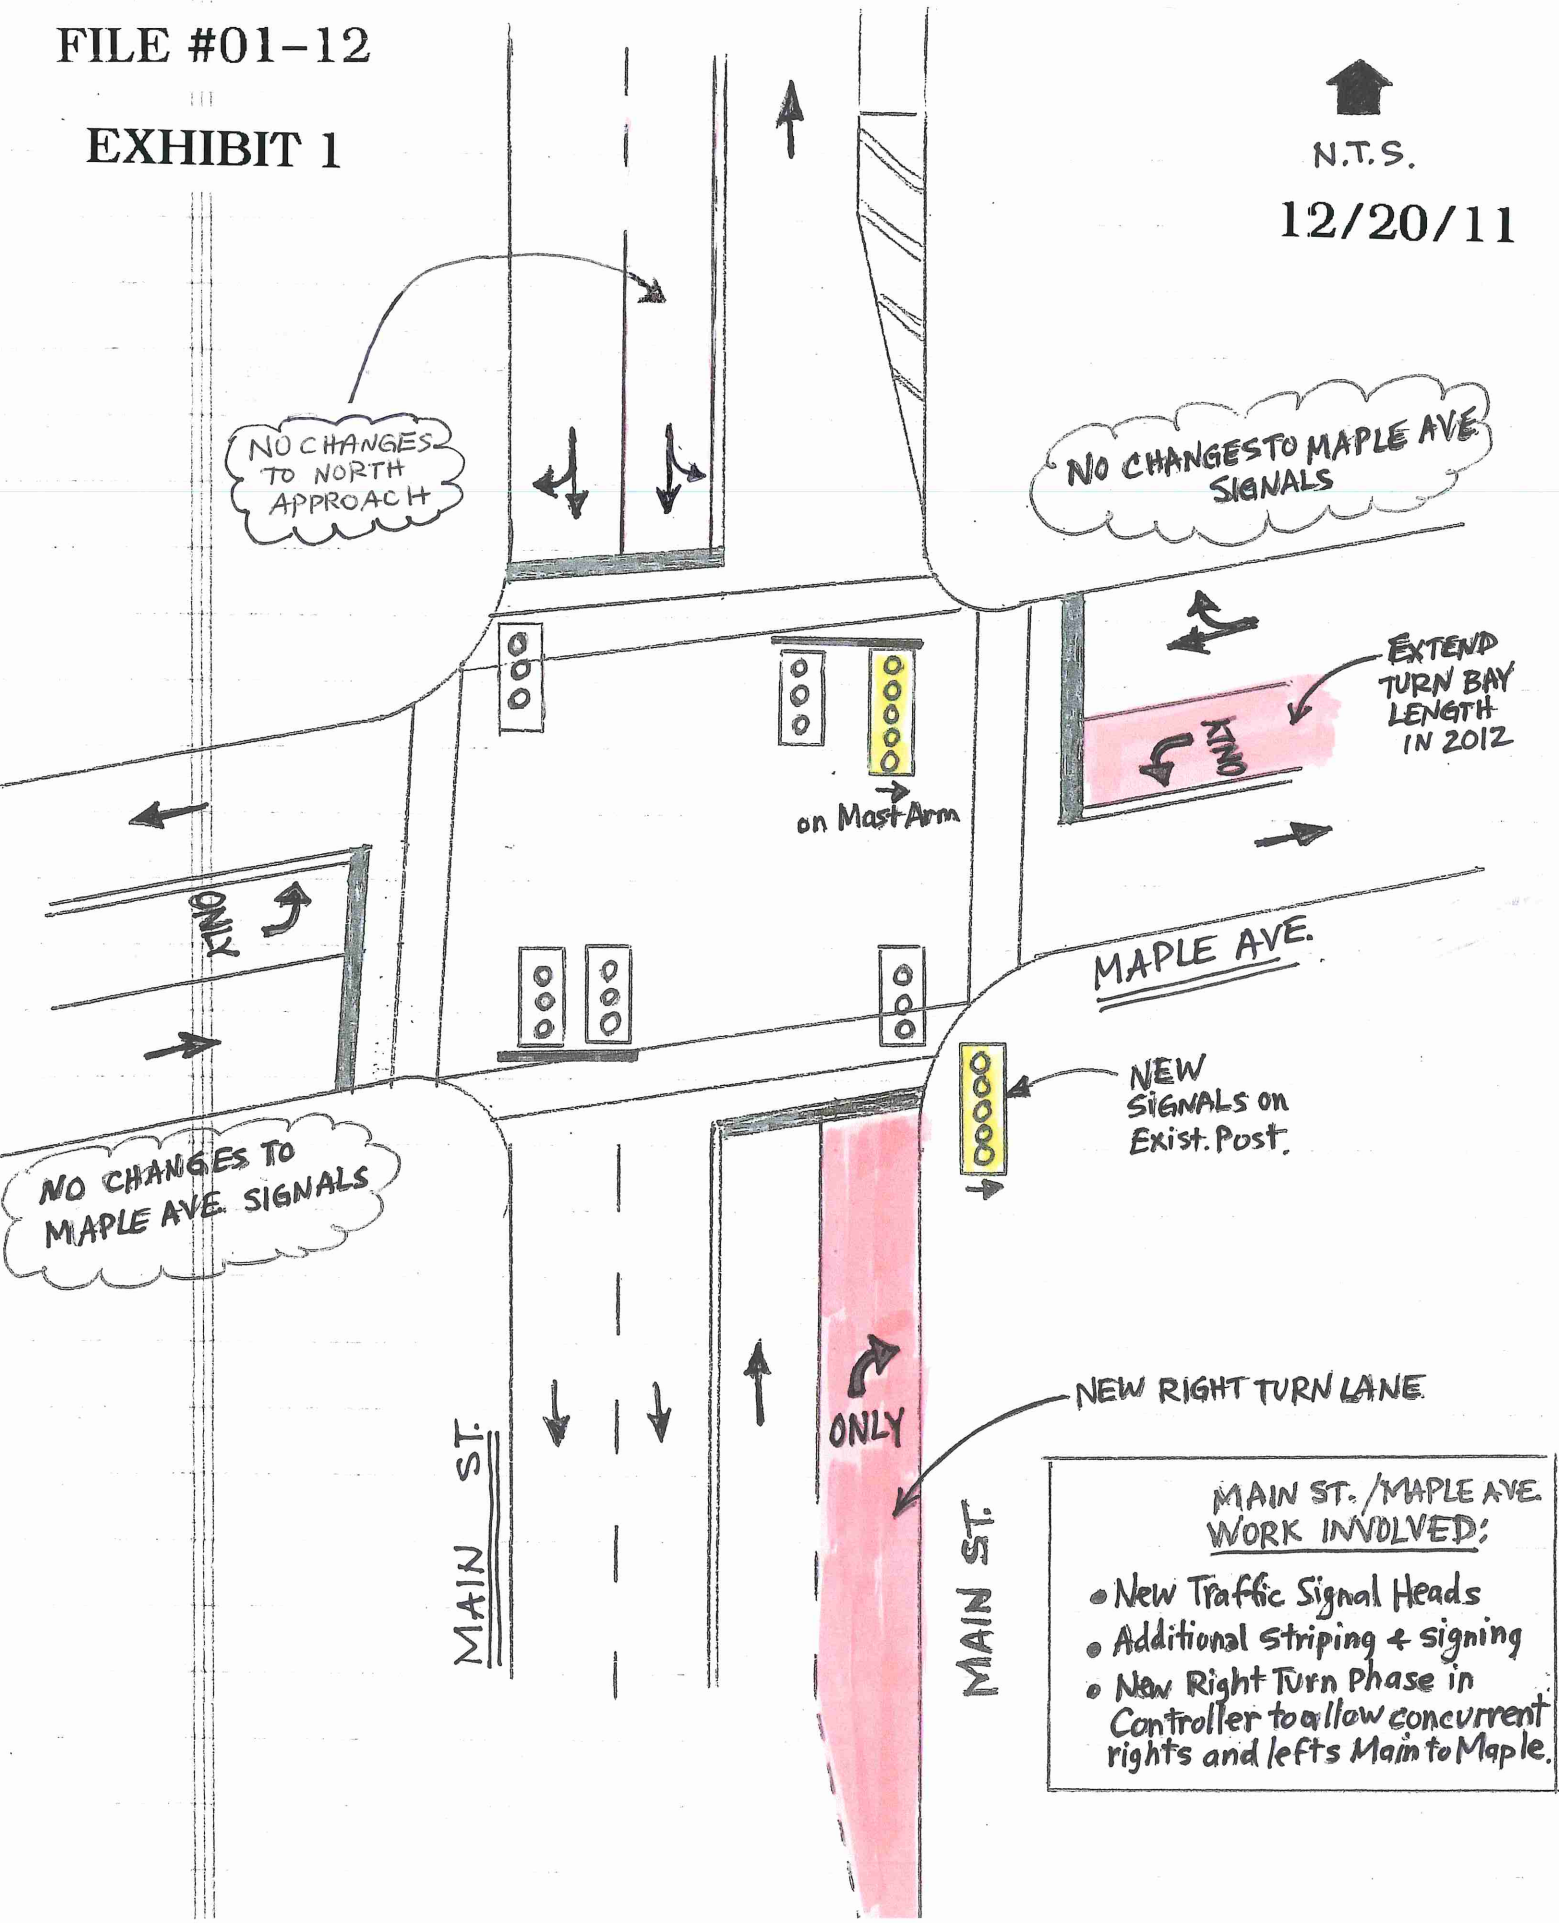 FILE #01-12
EXHIBIT 1
N.T.S.
12/20/11
NO CHANGES
TO NORTH
APPROACH
NO CHANGES TO MAPLE AVE
SIGNALS
EXTEND
TURN BAY
LENGTH
IN 2012
ONLY
on Mast Arm
ONLY
MAPLE AVE.
NEW
SIGNALS on
Exist. Post.
NO CHANGES TO
MAPLE AVE. SIGNALS
NEW RIGHT TURN LANE
ONLY
MAIN ST.
MAIN ST.
MAIN ST. / MAPLE AVE.
WORK INVOLVED:
• New Traffic Signal Heads
• Additional Striping + signing
• New Right Turn Phase in
Controller to allow concurrent
rights and lefts Main to Maple.